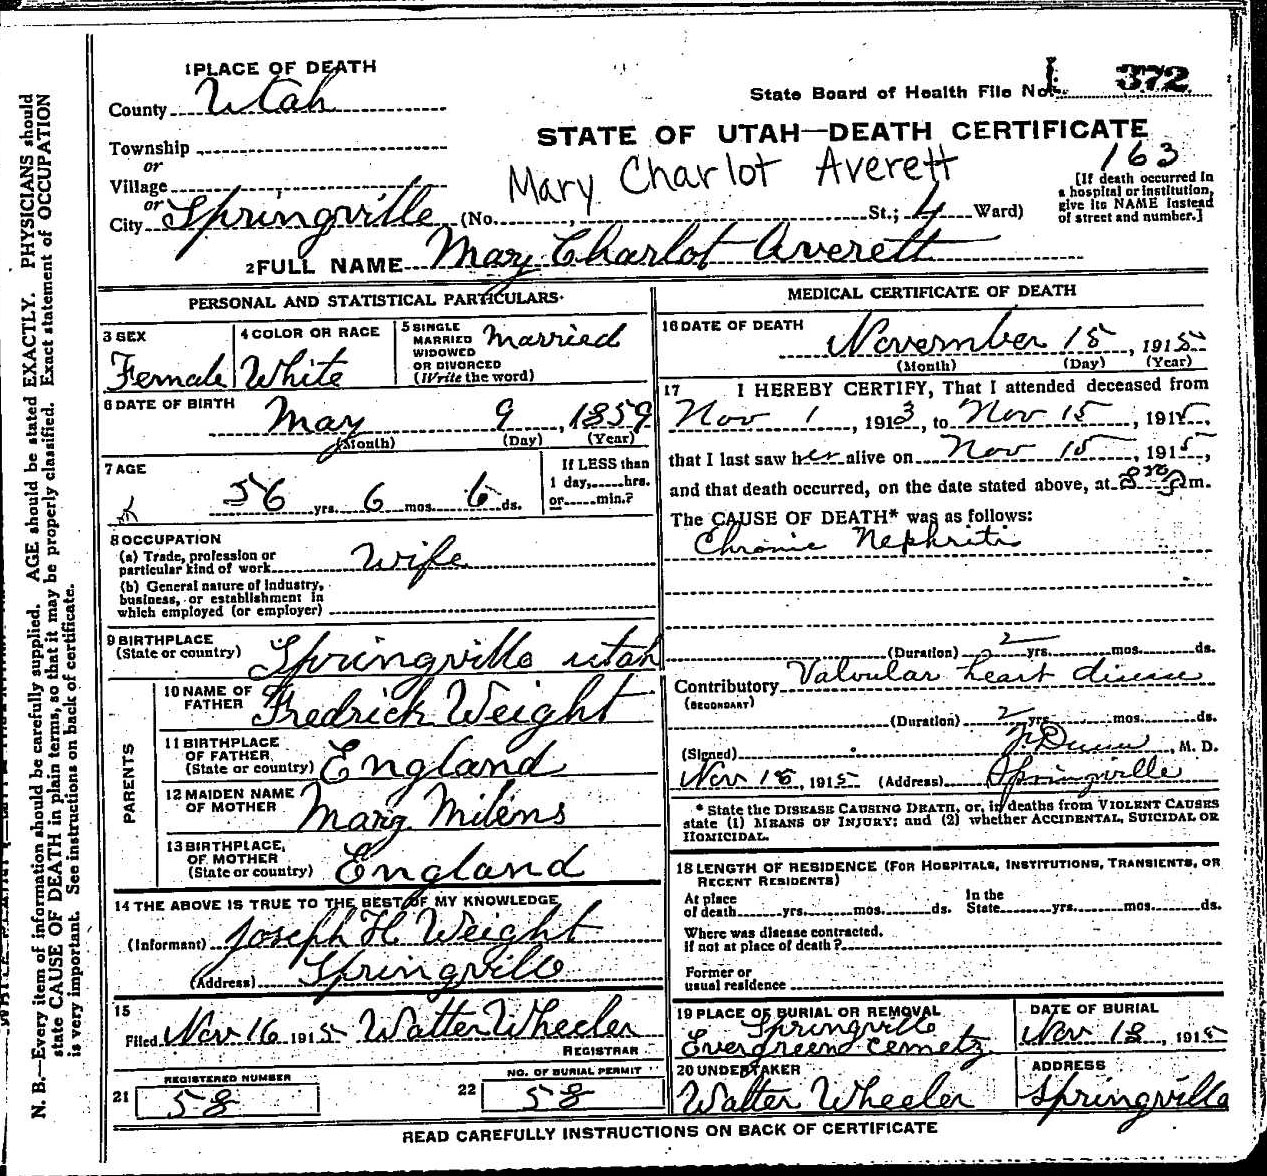 1 PLACE OF DEATH
County Utah
Township
or
Village
or
City Springville (No. St.; 4 Ward)
State Board of Health File No. 372
STATE OF UTAH—DEATH CERTIFICATE
Mary Charlot Averett
163
[If death occurred in a hospital or institution, give its NAME instead of street and number.]
2 FULL NAME Mary Charlot Averett
PERSONAL AND STATISTICAL PARTICULARS
3 SEX Female
4 COLOR OR RACE White
5 SINGLE MARRIED WIDOWED OR DIVORCED (Write the word) Married
6 DATE OF BIRTH
May 9, 1859
(Month) (Day) (Year)
7 AGE
56 yrs. 6 mos. 6 ds.
If LESS than 1 day, hrs. or min.?
8 OCCUPATION
(a) Trade, profession or particular kind of work Wife
(b) General nature of industry, business, or establishment in which employed (or employer)
9 BIRTHPLACE (State or country) Springville Utah
PARENTS
10 NAME OF FATHER Fredrick Weight
11 BIRTHPLACE OF FATHER (State or country) England
12 MAIDEN NAME OF MOTHER Mary Milens
13 BIRTHPLACE, OF MOTHER (State or country) England
14 THE ABOVE IS TRUE TO THE BEST OF MY KNOWLEDGE
(Informant) Joseph H Weight
(Address) Springville
15
Filed Nov 16 1915 Walter Wheeler
REGISTRAR
21 REGISTERED NUMBER 58
22 NO. OF BURIAL PERMIT 58
MEDICAL CERTIFICATE OF DEATH
16 DATE OF DEATH
November 15, 1915
(Month) (Day) (Year)
17 I HEREBY CERTIFY, That I attended deceased from
Nov 1, 1913, to Nov 15, 1915,
that I last saw her alive on Nov 15, 1915,
and that death occurred, on the date stated above, at m.
The CAUSE OF DEATH* was as follows:
Chronic Nephritis
(Duration) 2 yrs. mos. ds.
Contributory Valvular heart disease
(SECONDARY)
(Duration) 2 yrs. mos. ds.
(Signed) Dunn, M. D.
Nov 1915 (Address) Springville
* State the DISEASE CAUSING DEATH, or, in deaths from VIOLENT CAUSES
state (1) MEANS OF INJURY; and (2) whether ACCIDENTAL, SUICIDAL OR
HOMICIDAL.
18 LENGTH OF RESIDENCE (FOR HOSPITALS, INSTITUTIONS, TRANSIENTS, OR
RECENT RESIDENTS)
At place of death yrs. mos. ds. In the State yrs. mos. ds.
Where was disease contracted.
if not at place of death?
Former or
usual residence
19 PLACE OF BURIAL OR REMOVAL
Springville
Evergreen
DATE OF BURIAL
Nov 18, 1915
20 UNDERTAKER
Walter Wheeler
ADDRESS
Springville
READ CAREFULLY INSTRUCTIONS ON BACK OF CERTIFICATE
N. B.—Every item of information should be carefully supplied. AGE should be stated EXACTLY. PHYSICIANS should
state CAUSE OF DEATH in plain terms, so that it may be properly classified. Exact statement of OCCUPATION
is very important. See instructions on back of certificate.